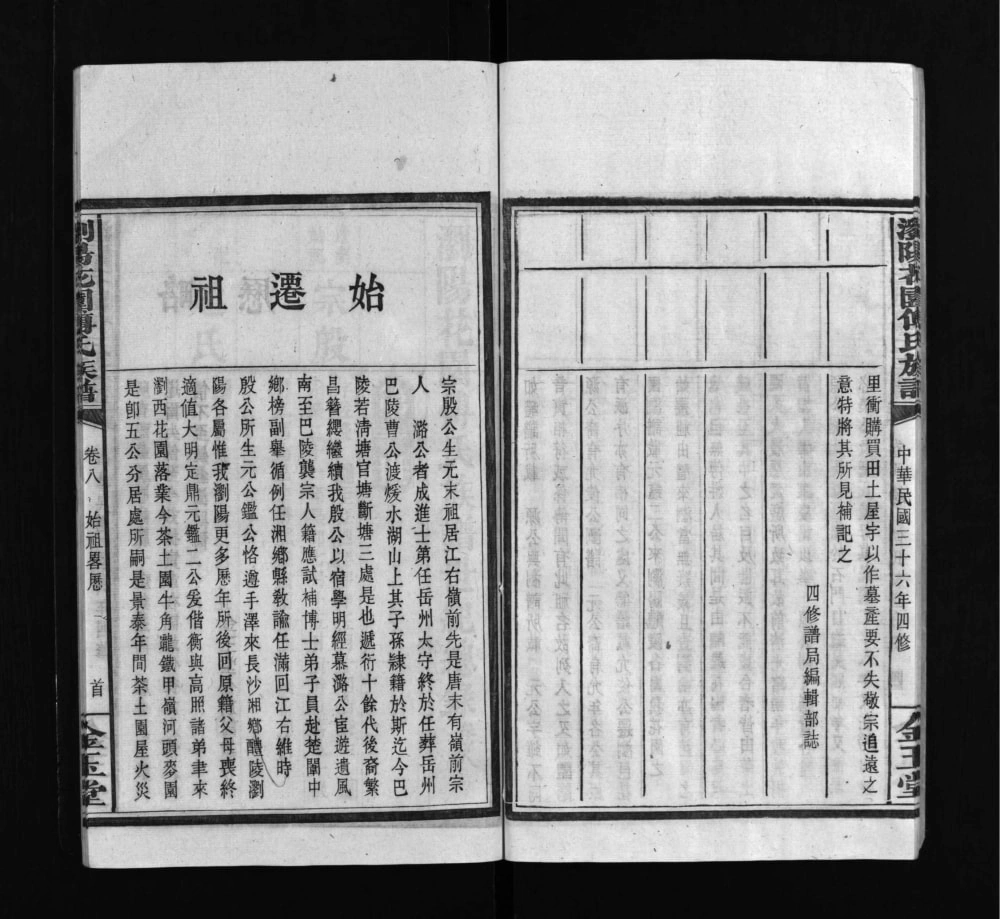 瀏陽花園傅氏族譜
中華民國三十六年四修
金玉堂
里衝購買田土屋宇以作墓產要不失敬宗追遠之
意特將其所見補記之
四修譜局編輯部誌
始遷祖
宗殷公生元末祖居江右嶺前先是唐末有嶺前宗
人 潞公者成進士第任岳州太守終於任葬岳州
巴陵曹公渡煖水湖山上其子孫隸籍於斯迄今巴
陵若清塘官塘斷塘三處是也遞衍十餘代後裔繁
昌簪纓繼續我殷公以宿學明經慕潞公宦遊遺風
南至巴陵襲宗人籍應試補博士弟子員赴楚闈中
鄉榜副舉循例任湘鄉縣教諭任滿回江右維時
殷公所生元公鑑公恪遵手澤來長沙湘鄉醴陵瀏
陽各屬惟我瀏陽更多歷年所後回原籍父母喪終
適值大明定鼎元鑑二公爰偕衡與高照諸弟聿來
瀏西花園落業今茶土園牛角隴鐵甲嶺河頭麥園
是卽五公分居處所嗣是景泰年間茶土園屋火災
瀏陽花園傅氏族譜
卷八 始祖畧歷
首
金玉堂